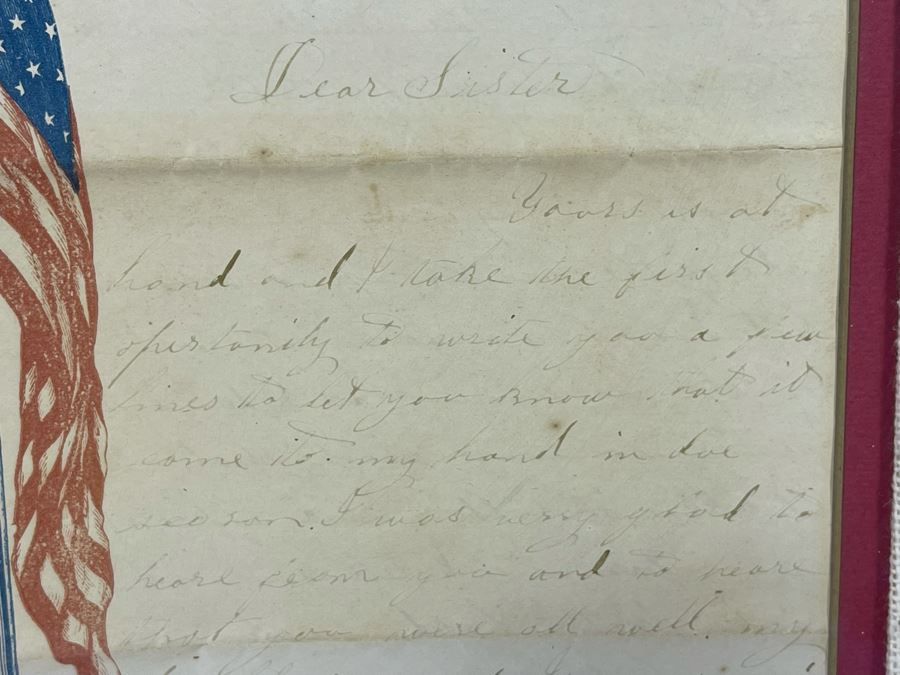 Dear Sister
Yoors is at
hand and I take the first
opertonity to write yoo a few
lines to let yoo know that it
come to my hand in doe
season. I was verry glad to
heare from yoo and to heare
that yoo were all well. my